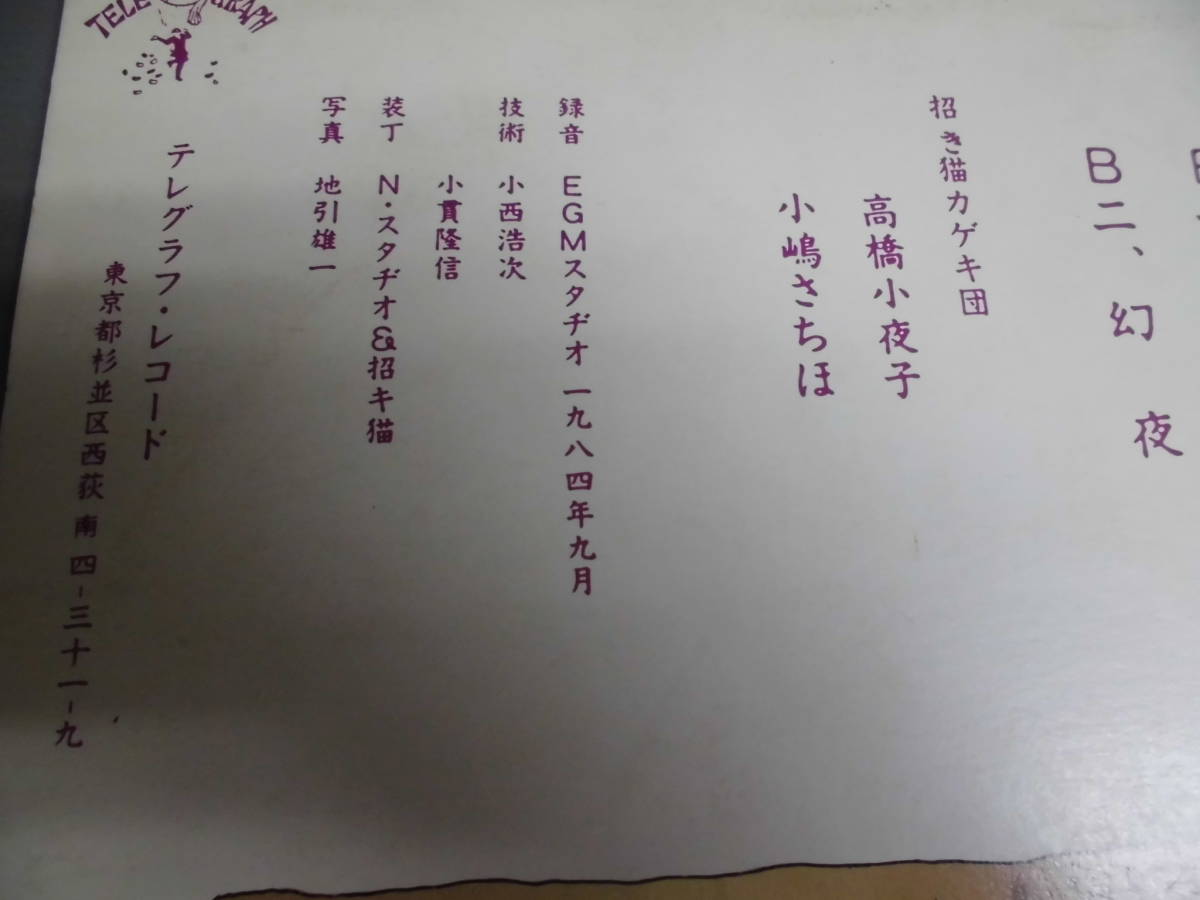 B二、幻夜
招き猫カゲキ団
高橋小夜子
小嶋さちほ
録音 EGMスタヂオ 一九八四年九月
技術 小西浩次
小貫隆信
装丁 N・スタヂオ&招キ猫
写真 地引雄一
テレグラフ・レコード
東京都杉並区西荻南四-三十一-九
TELEGRAPH